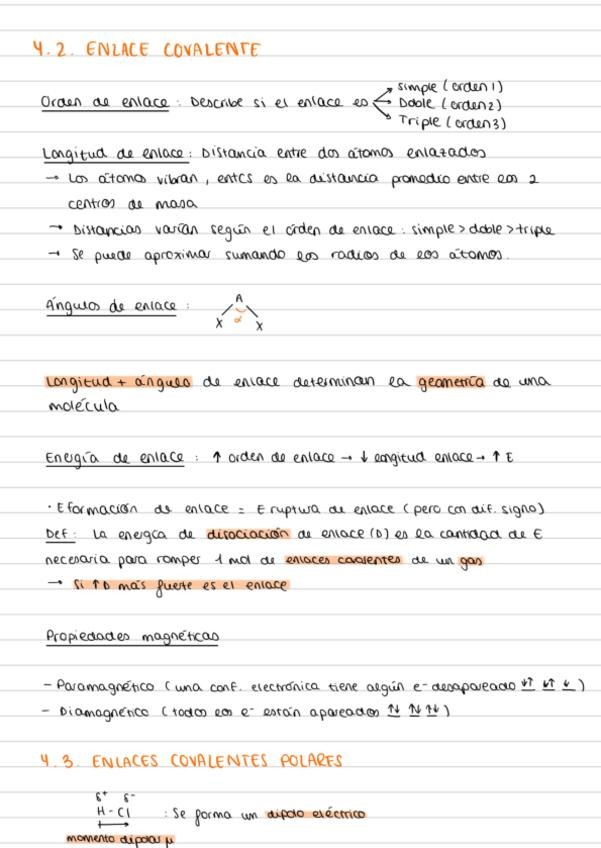 4.2. ENLACE COVALENTE
Simple (orden 1)
Orden de enlace : Describe si el enlace es Doble (orden 2)
Triple (orden 3)
Longitud de enlace : Distancia entre dos átomos enlazados
→ Los átomos vibran, entcs es la distancia promedio entre los 2
centros de masa
→ Distancias varían según el orden de enlace : simple > doble > triple
→ Se puede aproximar sumando los radios de los átomos.
Ángulos de enlace :
A
X α X
Longitud + ángulo de enlace determinan la geometría de una
molécula
Energía de enlace : ↑ orden de enlace → ↓ longitud enlace → ↑ E
· E formación de enlace = E ruptura de enlace (pero con dif. signo)
Def : La energía de disociación de enlace (D) es la cantidad de E
necesaria para romper 1 mol de enlaces covalentes de un gas
→ Si ↑ D más fuerte es el enlace
Propiedades magnéticas
- Paramagnético (una conf. electrónica tiene algún e- desapareado ↓↑ ↓↑ ↓)
- Diamagnético (todos los e- están apareados ↑↓ ↑↓ ↑↓)
4.3. ENLACES COVALENTES POLARES
δ+ δ-
H - Cl : Se forma un dipolo eléctrico
momento dipolar μ